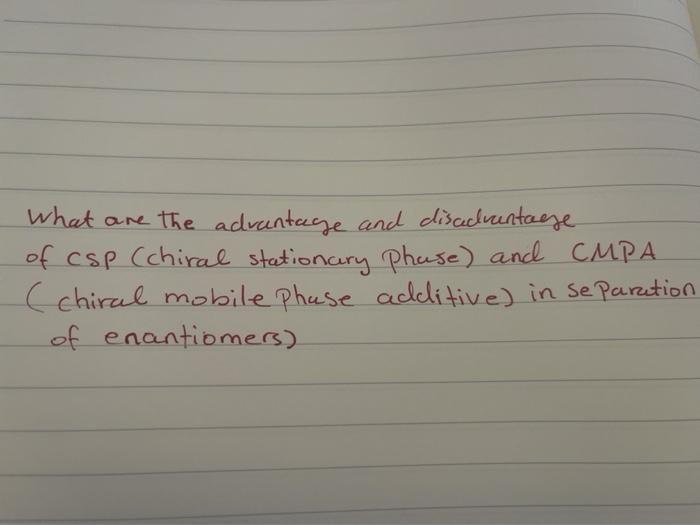 What are the advantage and disadvantage
of csp (chiral stationary phase) and CMPA
(chiral mobile phase additive) in separation
of enantiomers)